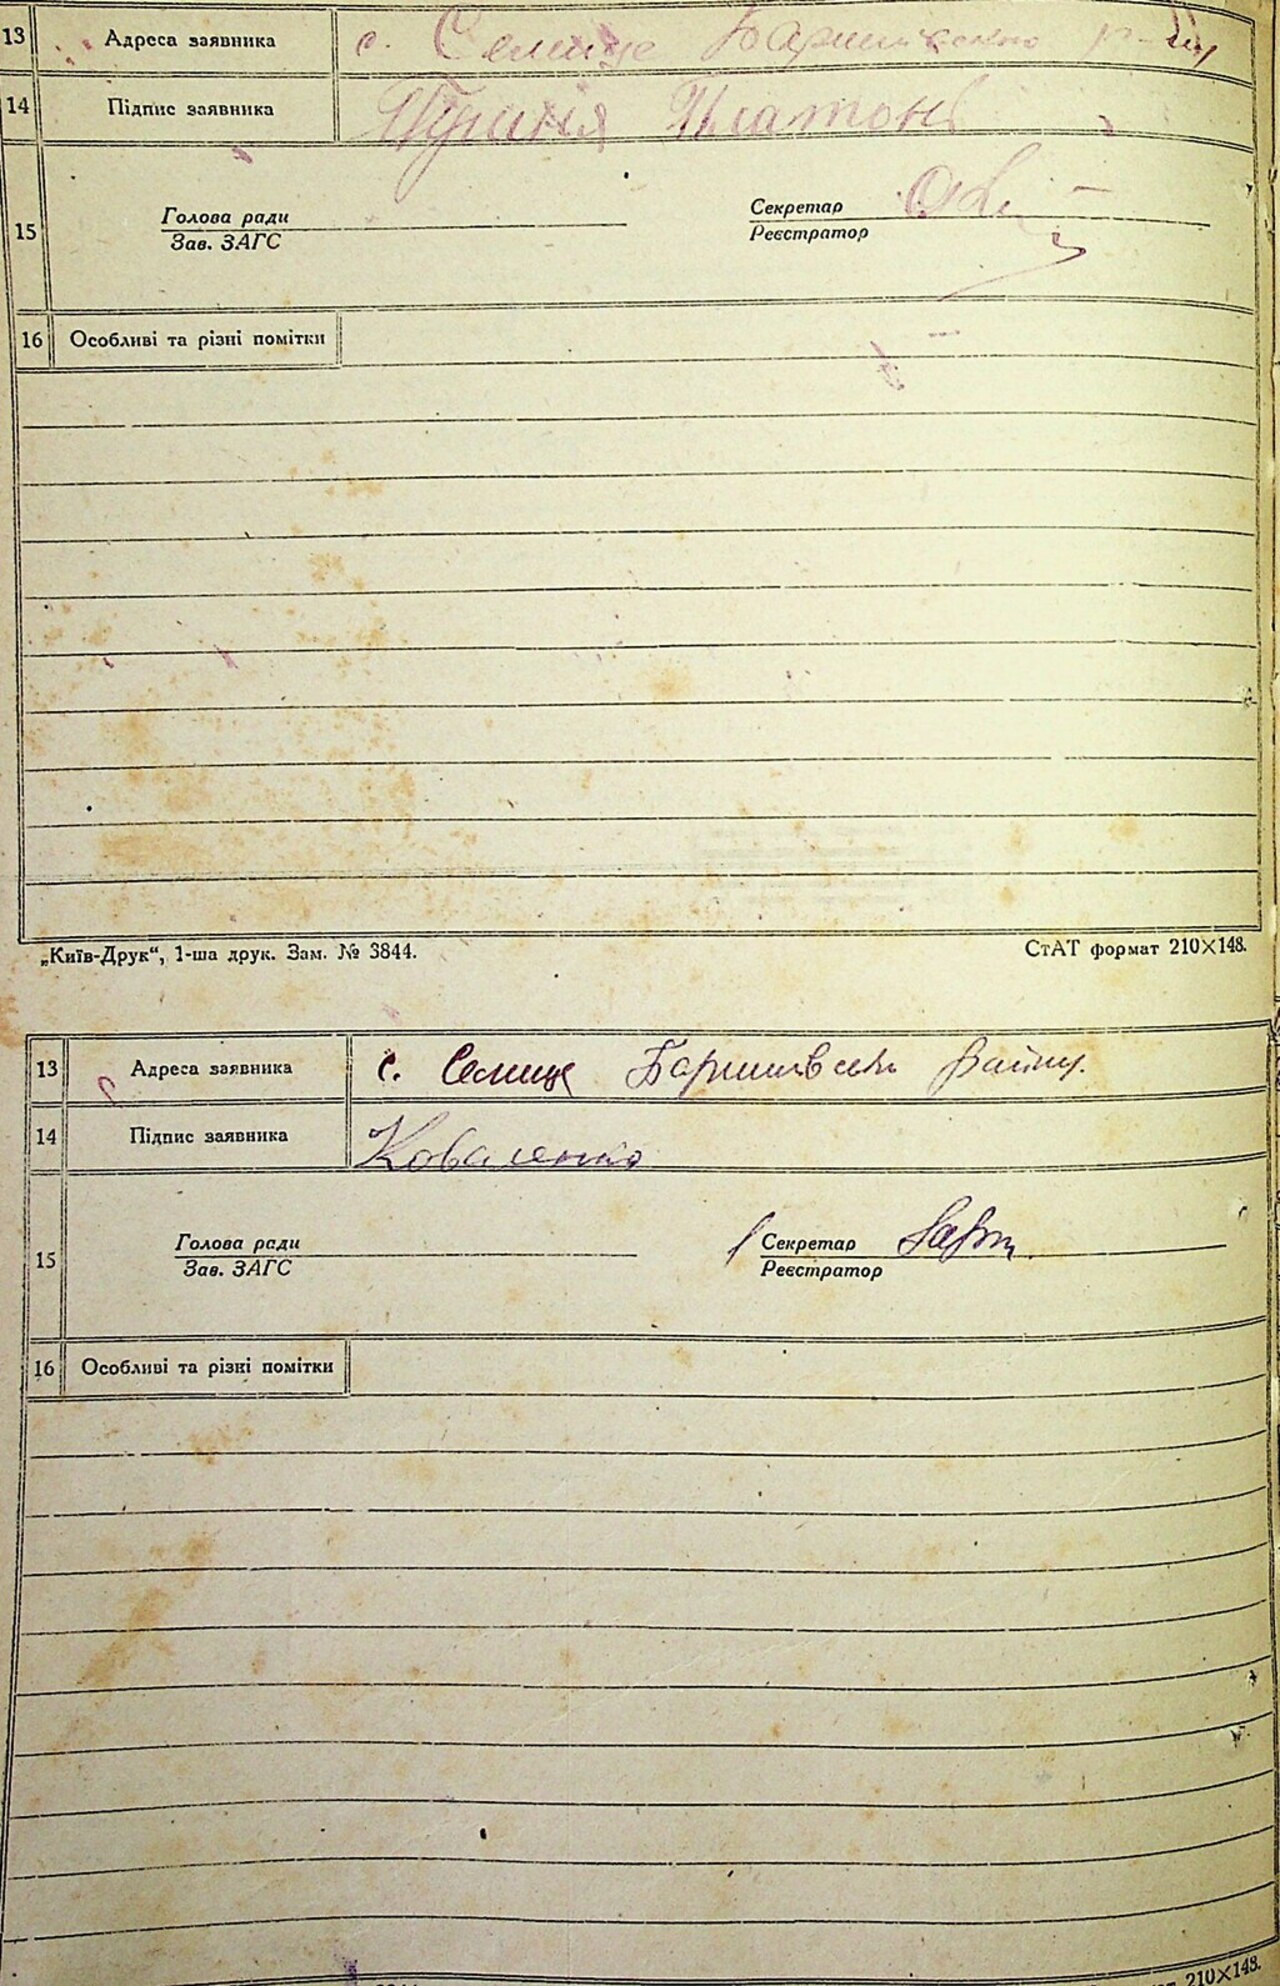 13 Адреса заявника с. Селище Баришівського р-ну
14 Підпис заявника Платон
15 Голова ради Секретар
Зав. ЗАГС Реєстратор
16 Особливі та різні помітки
„Київ-Друк“, 1-ша друк. Зам. № 3844.
СтАТ формат 210×148.
13 Адреса заявника с. Селище Баришівськ району.
14 Підпис заявника Коваленко
15 Голова ради Секретар
Зав. ЗАГС Реєстратор
16 Особливі та різні помітки
210×148.